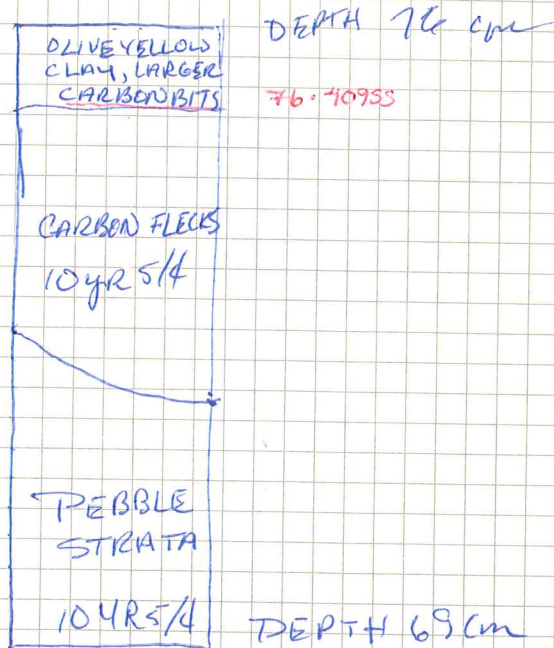 DEPTH 76 cm
OLIVE YELLOW
CLAY, LARGER
CARBON BITS
76.40955
CARBON FLECKS
10yR 5/4
PEBBLE
STRATA
10YR5/4
DEPTH 69 cm